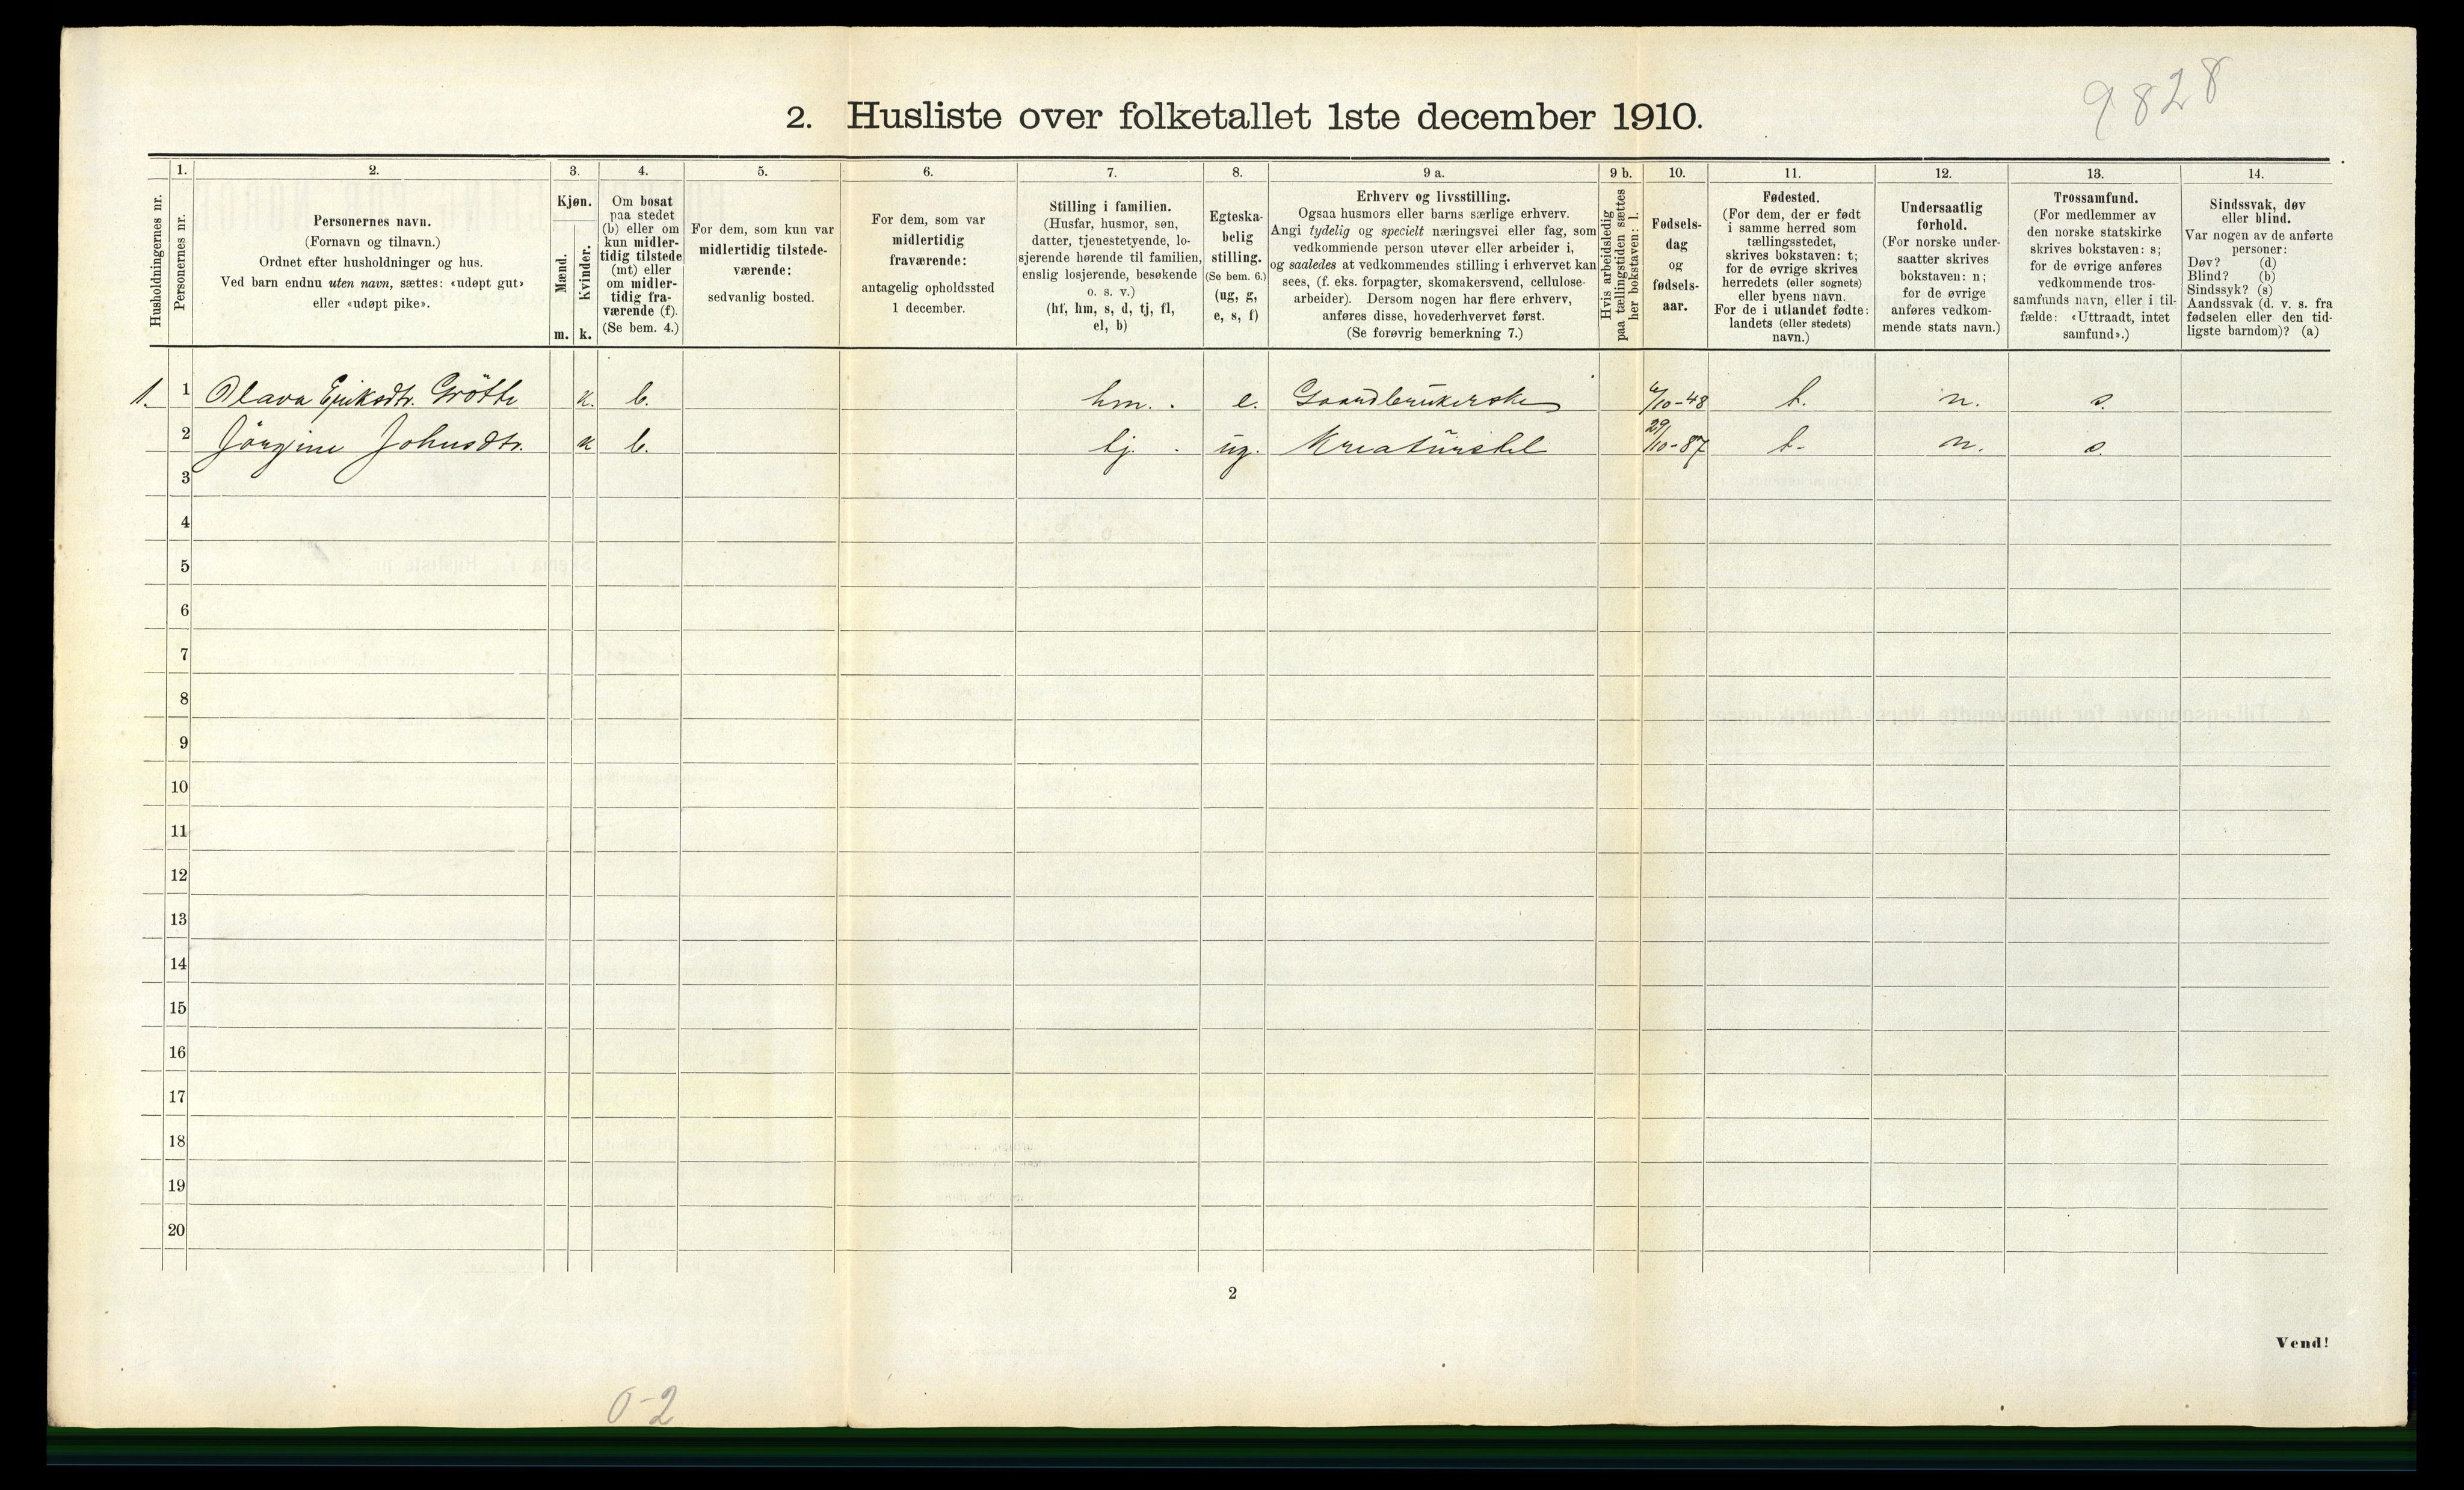 9828
2. Husliste over folketallet 1ste december 1910.
Husholdningernes nr.
1.
Personernes nr.
2.
Personernes navn.
(Fornavn og tilnavn.)
Ordnet efter husholdninger og hus.
Ved barn endnu uten navn, sættes: «udøpt gut»
eller «udøpt pike».
3.
Kjøn.
Mænd.
m.
Kvinder.
k.
4.
Om bosat
paa stedet
(b) eller om
kun midler-
tidig tilstede
(mt) eller
om midler-
tidig fra-
værende (f).
(Se bem. 4.)
5.
For dem, som kun var
midlertidig tilstede-
værende:
sedvanlig bosted.
6.
For dem, som var
midlertidig
fraværende:
antagelig opholdssted
1 december.
7.
Stilling i familien.
(Husfar, husmor, søn,
datter, tjenestetyende, lo-
sjerende hørende til familien,
enslig losjerende, besøkende
o. s. v.)
(hf, hm, s, d, tj, fl,
el, b)
8.
Egteska-
belig
stilling.
(Se bem. 6.)
(ug, g,
e, s, f)
9 a.
Erhverv og livsstilling.
Ogsaa husmors eller barns særlige erhverv.
Angi tydelig og specielt næringsvei eller fag, som
vedkommende person utøver eller arbeider i,
og saaledes at vedkommendes stilling i erhvervet kan
sees, (f. eks. forpagter, skomakersvend, cellulose-
arbeider). Dersom nogen har flere erhverv,
anføres disse, hovederhvervet først.
(Se forøvrig bemerkning 7.)
9 b.
Hvis arbeidsledig
paa tællingstiden sættes
her bokstaven: l.
10.
Fødsels-
dag
og
fødsels-
aar.
11.
Fødested.
(For dem, der er født
i samme herred som
tællingsstedet,
skrives bokstaven: t;
for de øvrige skrives
herredets (eller sognets)
eller byens navn.
For de i utlandet fødte:
landets (eller stedets)
navn.)
12.
Undersaatlig
forhold.
(For norske under-
saatter skrives
bokstaven: n;
for de øvrige
anføres vedkom-
mende stats navn.)
13.
Trossamfund.
(For medlemmer av
den norske statskirke
skrives bokstaven: s;
for de øvrige anføres
vedkommende tros-
samfunds navn, eller i til-
fælde: «Uttraadt, intet
samfund».)
14.
Sindssvak, døv
eller blind.
Var nogen av de anførte
personer:
Døv? (d)
Blind? (b)
Sindssyk? (s)
Aandssvak (d. v. s. fra
fødselen eller den tid-
ligste barndom)? (a)
1. 1 Olava Eriksdtr. Grötte k. b. hm. e. Gaardbrukerske /10-48 t. n. s.
2 Jörgine Johnsdtr. k b. tj. ug. Kreaturstel 29/10-87 t. n. s.
3
4
5
6
7
8
9
10
11
12
13
14
15
16
17
18
19
20
2
Vend!
0-2